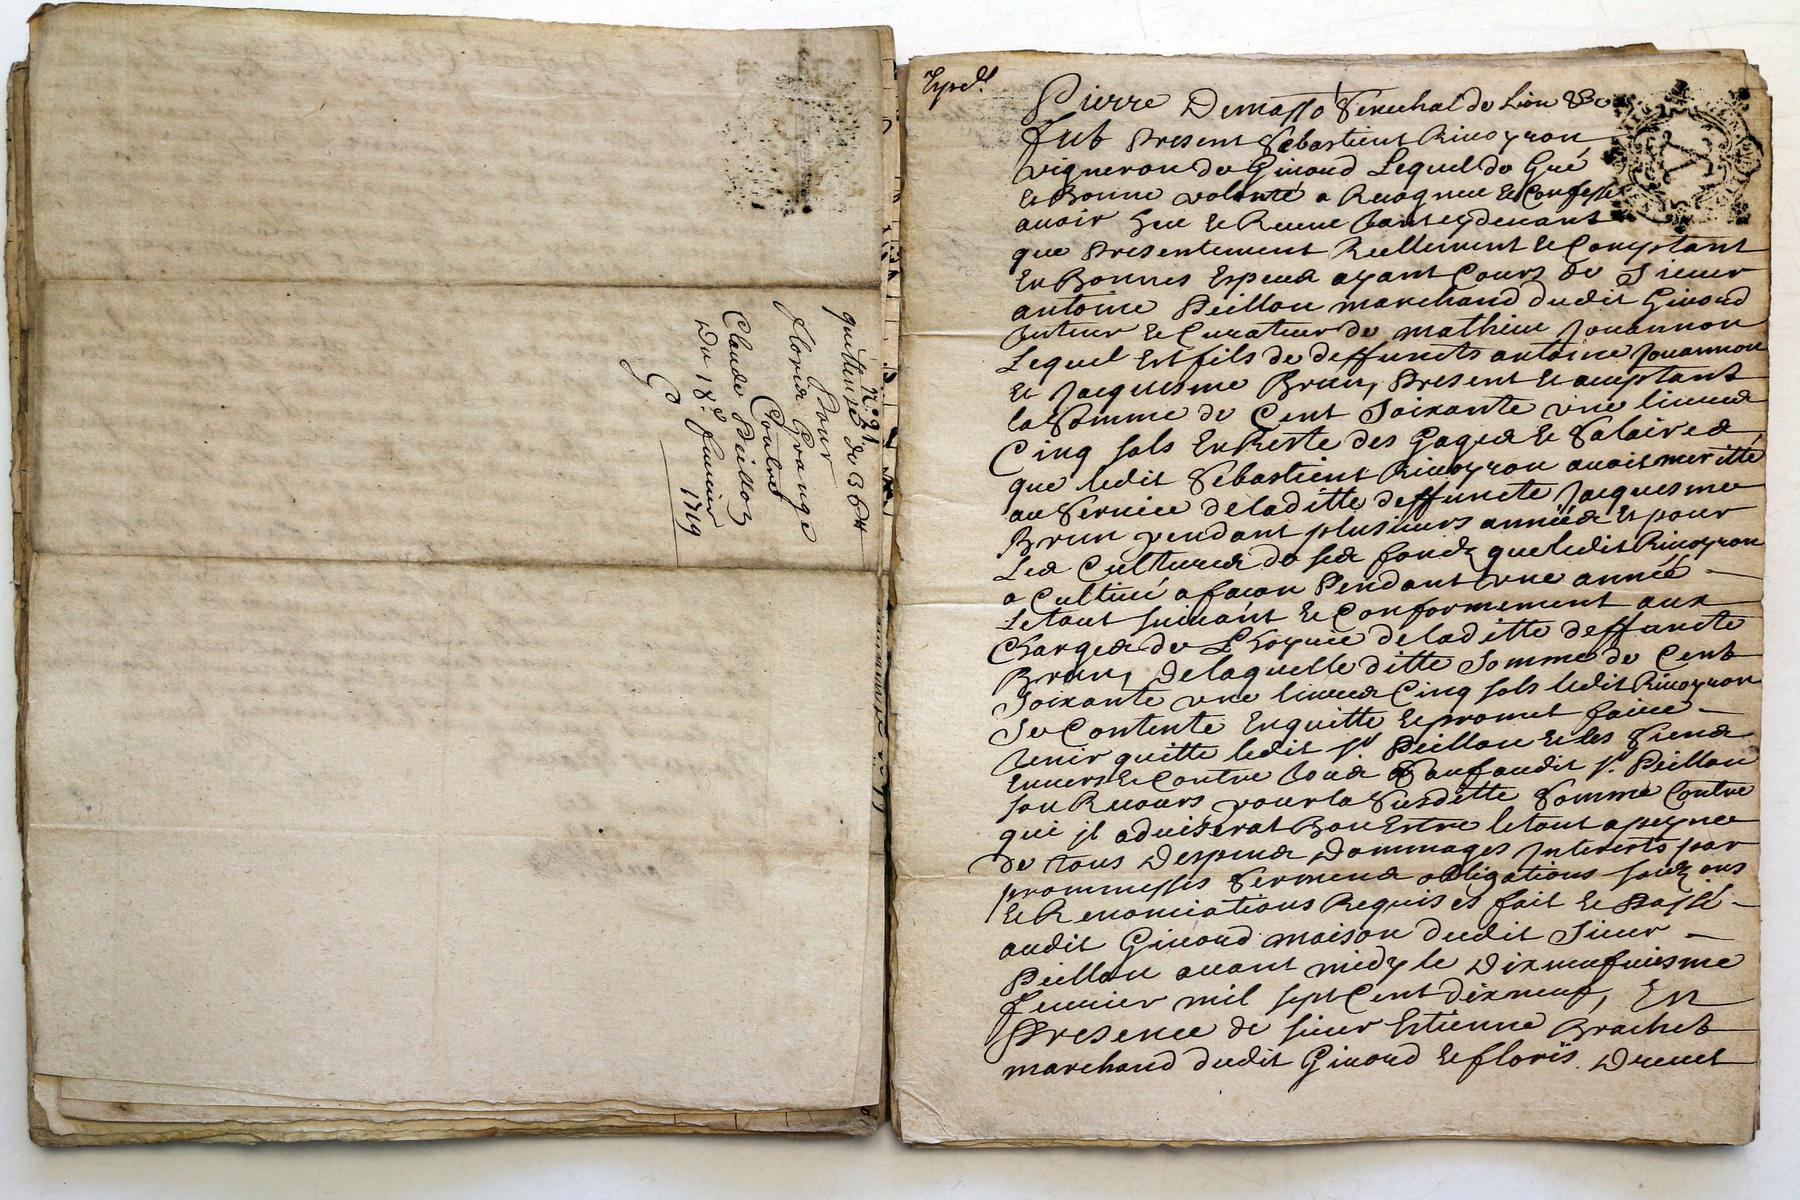 N.° 91
quittense de 36 tt
Pour
Florid Grange
Contre
Claude Peillon
Du 18.e Januier
1719
Expéd.
Pierre Demasso Senechal de Lion &c
fut Present Sebastient Riuoyron
vigneron de Giuord Lequel de Gré
et Bonne volonté a Recognu et Confessé
auoir heu et Receu tant cy deuant
que Presentement Reellement et Comptant
En Bonnes Especes ayant Cours de Sieur
antoine Peillon marchand dudit Giuord
tuteur et Curateur de mathieu Jouannon
Lequel Est fils de deffuncts antoine Jouannon
et Jacquesme Brun, Present et acceptant
la Somme de Cent Soixante vne liures
Cinq sols En Reste des Gages et Salaires
que ledit Sebastient Riuoyron auoit meritté
au Seruice de laditte deffuncte Jacquesme
Brun pendant plusieurs années et pour
Les Cultures de ses fondz que ledit Riuoyron
a Cultiué a facon Pendant vne année
Le tout suiuant et Conformement aux
Charges de L'hoyrie de laditte deffuncte
Brun, De laquelle ditte Somme de Cent
Soixante vne liures Cinq sols ledit Riuoyron
Se Contente En quitte et promet faire
tenir quitte ledit Sr. Peillon et les Siens
Enuers et Contre tous Sauf audit Sr. Peillon
son Recours pour la Susditte Somme Contre
qui jl aduiserat Bon Estre le tout a peyne
de tous Despens Dommages Interests par
prommesses Sermens obligations
et Renonciations Requises fait et Passé
audit Giuord maison dudit Sieur
Peillon auant midy le Dixneufuiesme
feurier mil sept Cent dixneuf, En
Presence de sieur Estienne Brachet
marchand dudit Giuord et floris Dreuet